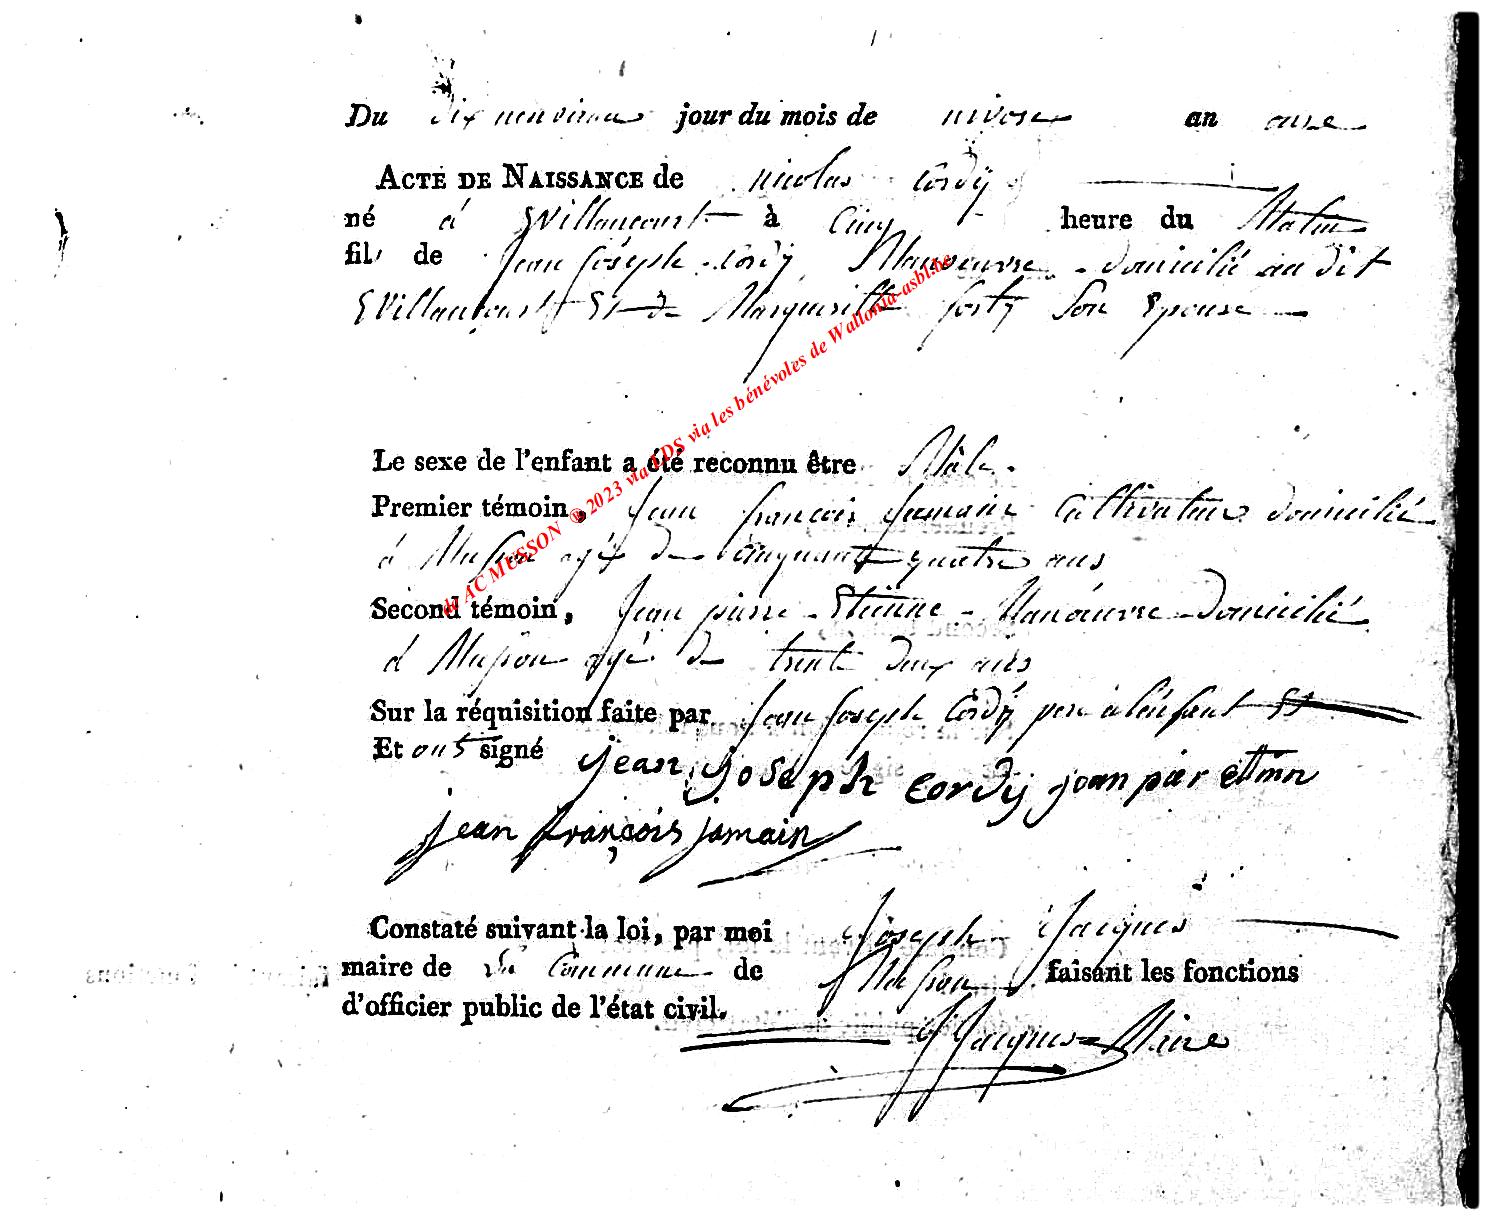 Du dix neuvieme jour du mois de nivose an onze
ACTE DE NAISSANCE de nicolas Cordÿ
né à Willancourt à Cinq heure du Matin
fils de Jean Joseph Cordÿ Manoeuvre domicilié au dit
Willancourt Et de Margueritte forty Son Epouse
Le sexe de l'enfant a été reconnu être Mâle.
Premier témoin, Jean françois Jamain Cultivateur domicilié
à Musson agé de cinquante quatre ans
Second témoin, Jean pierre Etienne Manoeuvre Domicilié
à Musson agé de trente deux ans
Sur la réquisition faite par Jean Joseph Cordÿ pere à l'enfant Et
Et ont signé jean joseph cordÿ jean pier ettinn
jean françois jamain
Constaté suivant la loi, par moi Joseph Jacques
maire de La Commune de Musson faisant les fonctions
d'officier public de l'état civil.
J Jacques Maire
de AC MUSSON © 2023 via FDS via les bénévoles de Wallonia-asbl.be